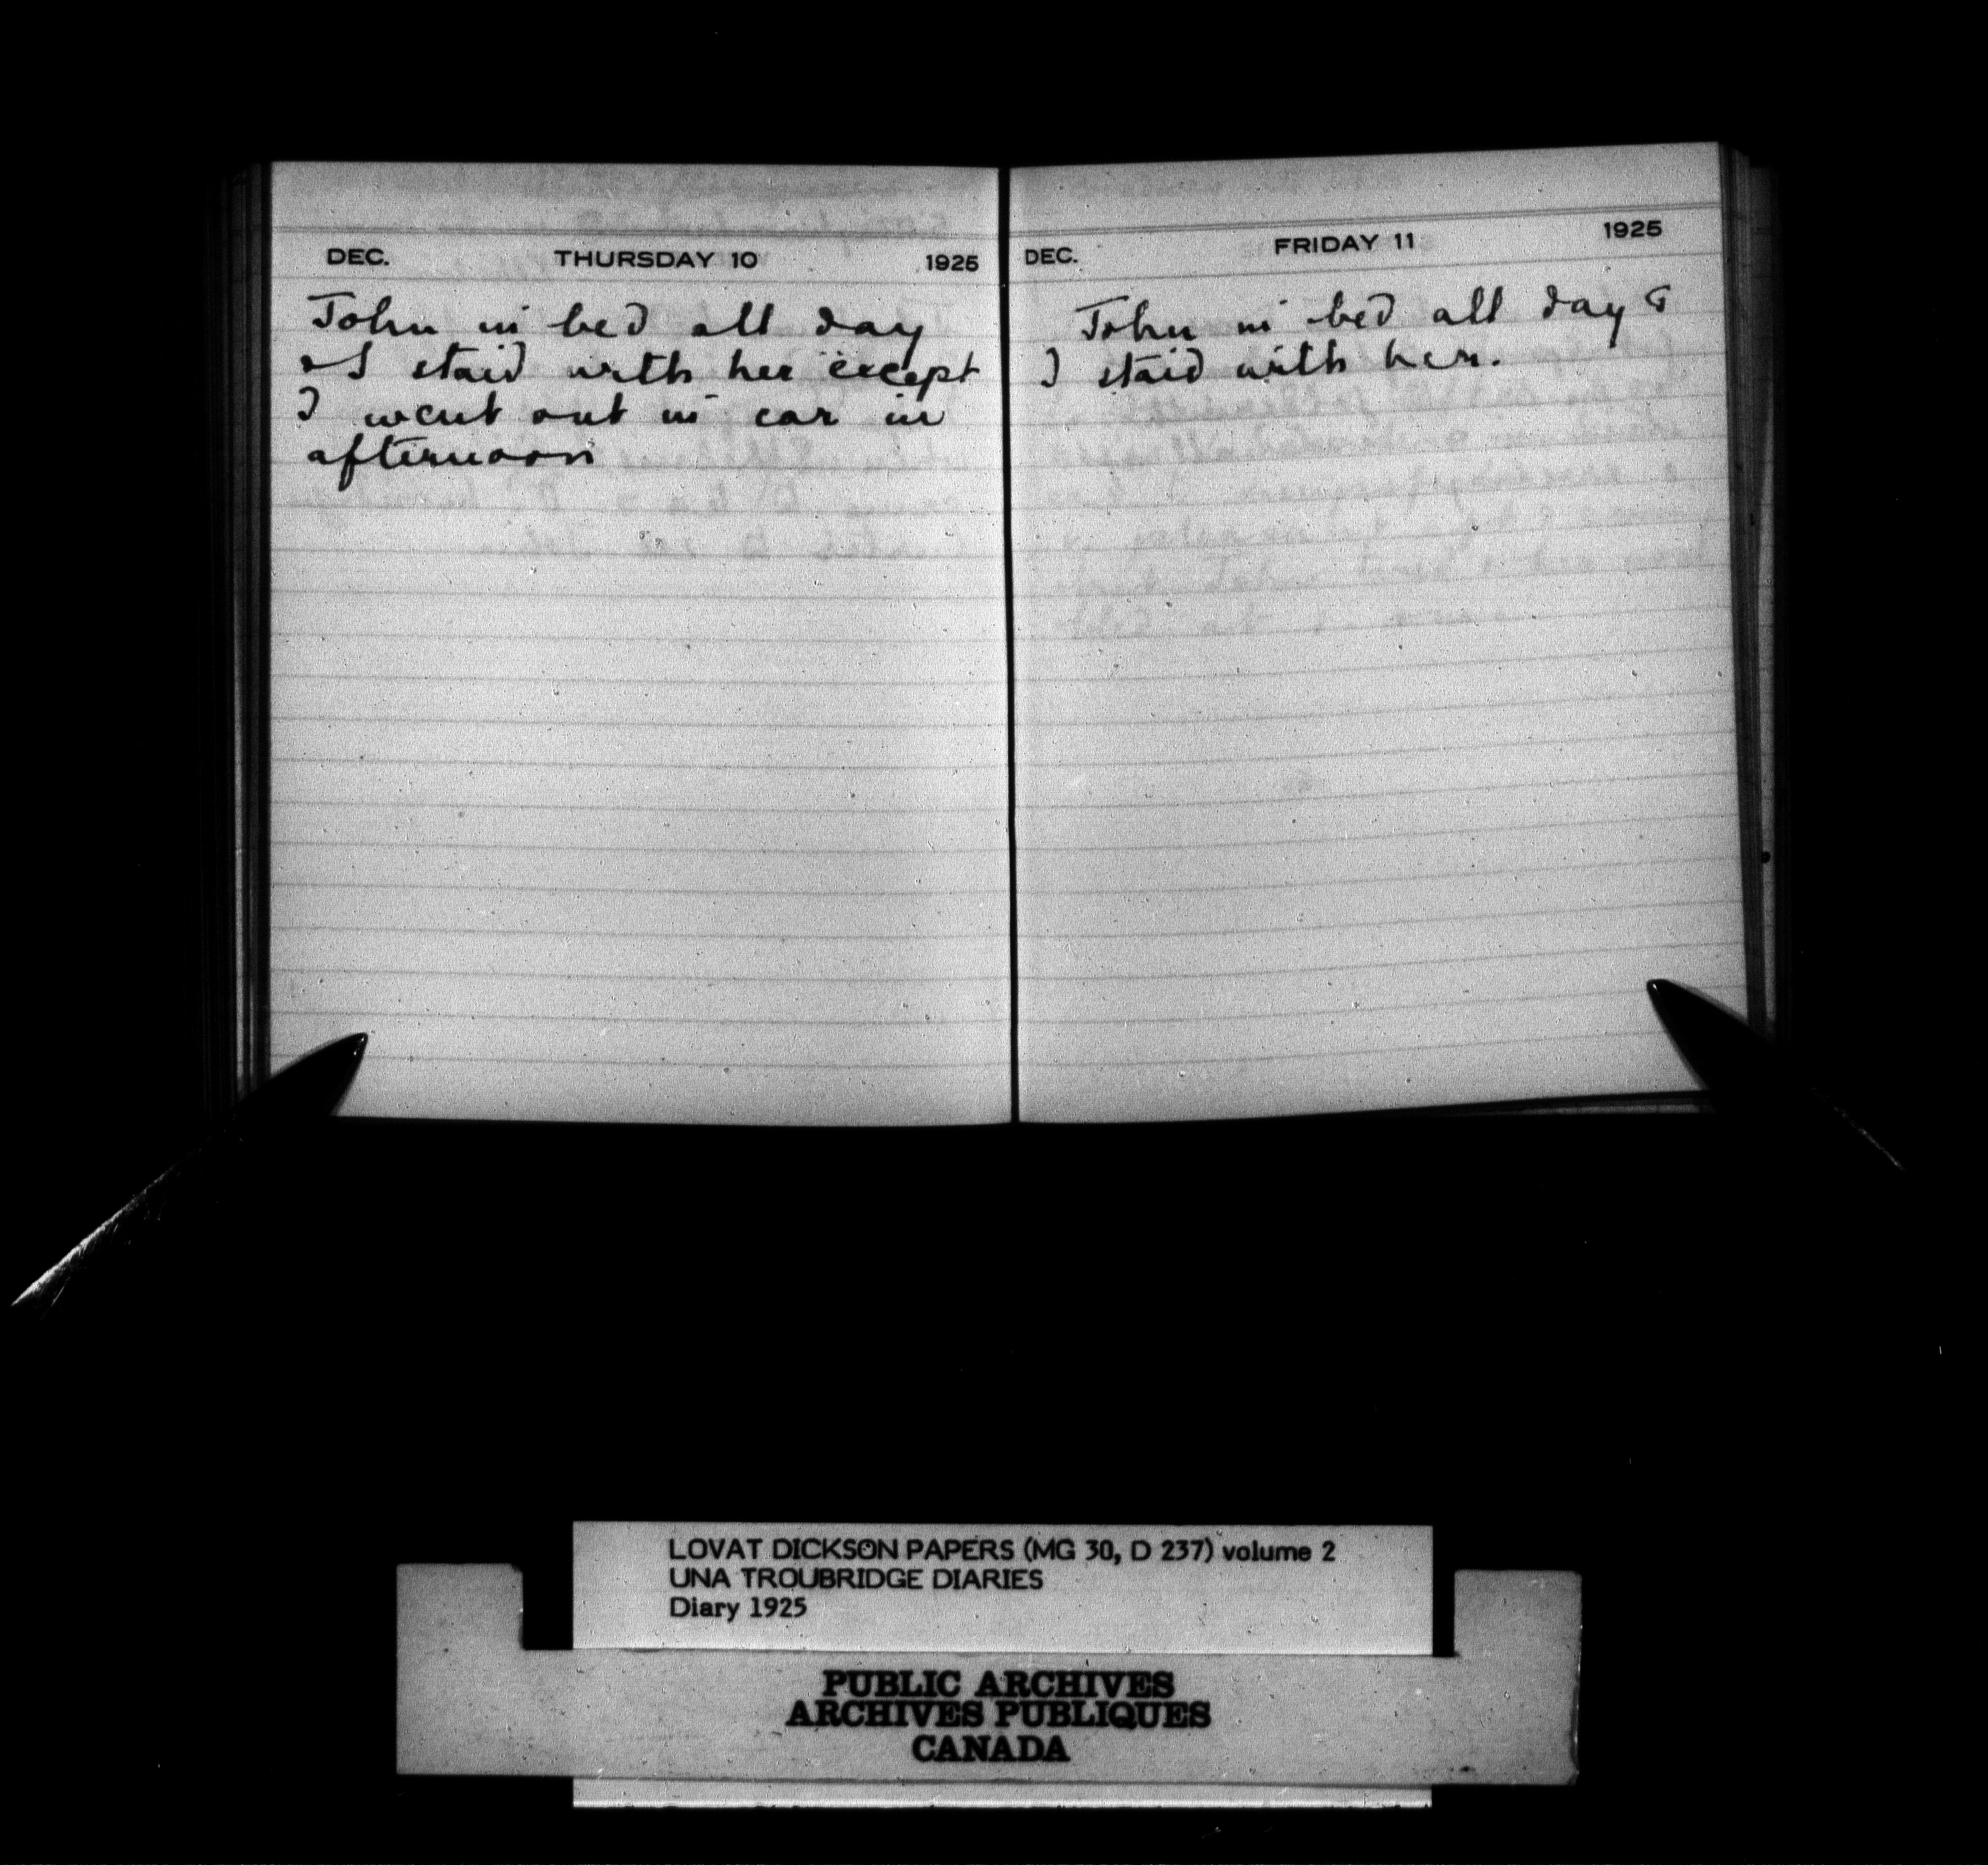 DEC. THURSDAY 10 1925
John in bed all day
& I staid with her except
I went out in car in
afternoon
DEC. FRIDAY 11 1925
John in bed all day &
I staid with her.
LOVAT DICKSON PAPERS (MG 30, D 237) volume 2
UNA TROUBRIDGE DIARIES
Diary 1925
PUBLIC ARCHIVES
ARCHIVES PUBLIQUES
CANADA